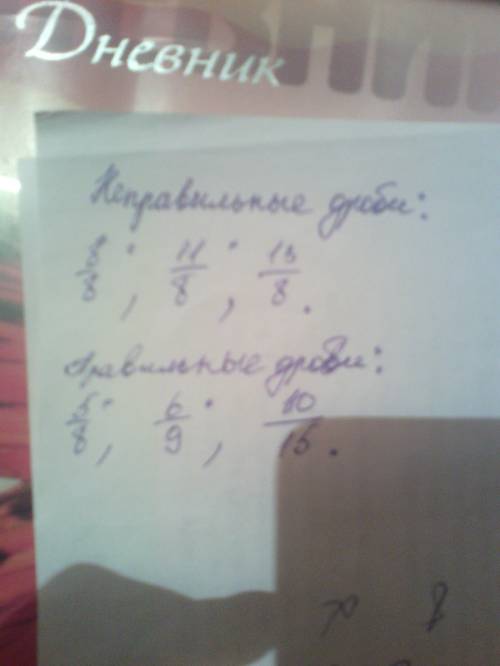 Дневник
Неправильные дроби:
11/8; 13/8.
Правильные дроби:
5/8; 6/9; 10/15.